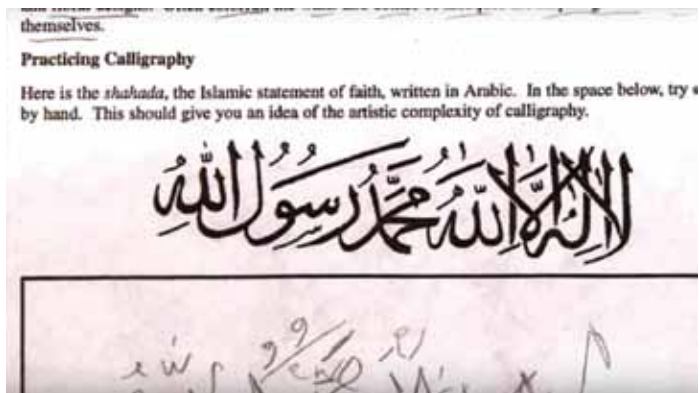 themselves.
Practicing Calligraphy
Here is the shahada, the Islamic statement of faith, written in Arabic. In the space below, try
by hand. This should give you an idea of the artistic complexity of calligraphy.
لا إله إلا الله محمد رسول الله